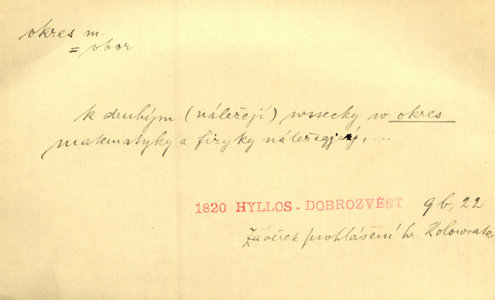 okres m.
= obor
k druhým (náležejí) wssecky w okres
matematyky a fizyky náležegjcý, ...
1820 HYLLOS - DOBROZVĚST 9b, 22
Závěrek prohlášení hr. Kolowrata